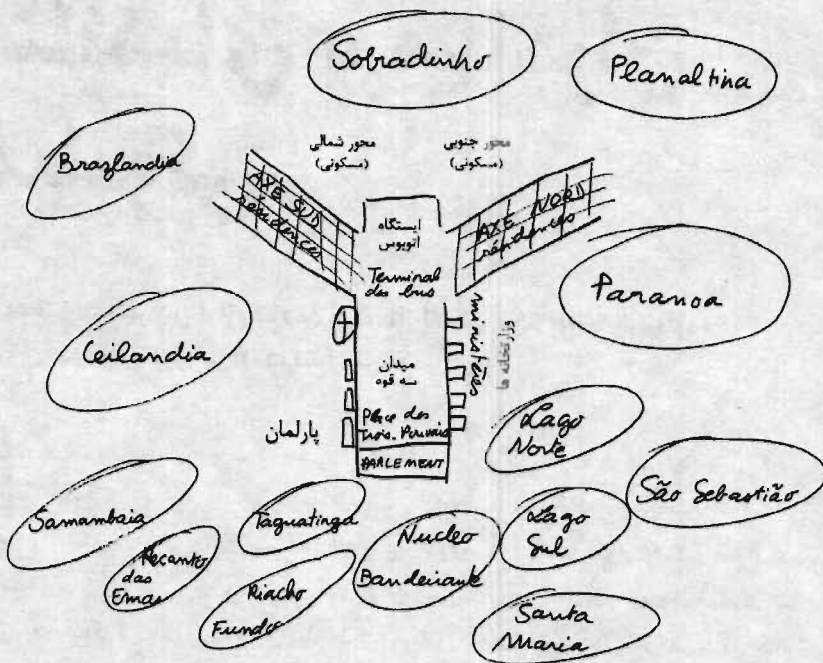 Sobradinho
Planaltina
Brazlandia
محور شمالی
(مسکونی)
محور جنوبی
(مسکونی)
AXE SUD
résidences
AXE NORD
résidences
ایستگاه
اتوبوس
Terminal
des bus
Paranoa
Ceilandia
ministères
وزارتخانه ها
میدان
سه قوه
Place des
Trois-Pouvoirs
پارلمان
PARLEMENT
Lago
Norte
São Sebastião
Samambaia
Taguatinga
Nucleo
Bandeirante
Lago
Sul
Recanto
das
Emas
Riacho
Fundo
Santa
Maria